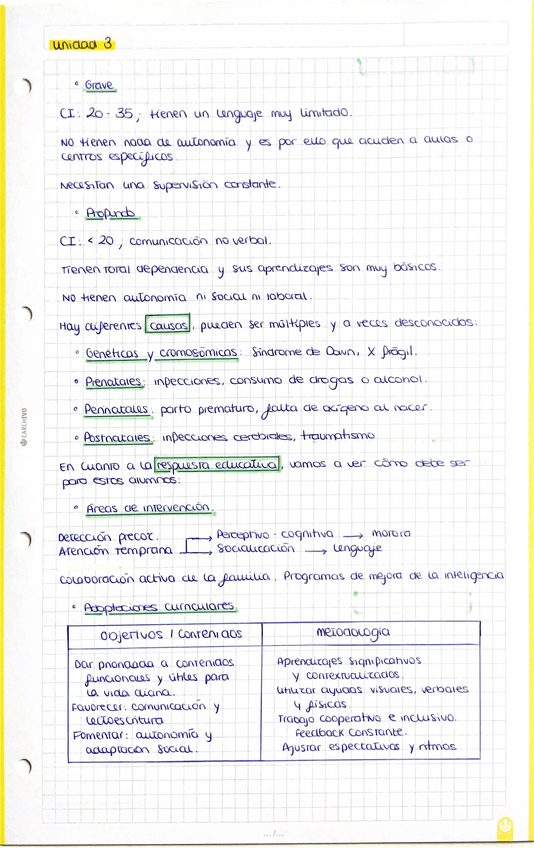 Unidad 3
• Grave
CI: 20 - 35, tienen un lenguaje muy limitado.
NO tienen nada de autonomía y es por ello que acuden a aulas o
centros específicos.
Necesitan una supervisión constante.
• Profundo
CI: < 20, comunicación no verbal.
Tienen total dependencia y sus aprendizajes son muy básicos.
NO tienen autonomía ni social ni laboral.
Hay diferentes causas, pueden ser múltiples y a veces desconocidas:
• Genéticas y cromosómicas: Síndrome de Down, X frágil.
• Prenatales: infecciones, consumo de drogas o alcohol.
• Perinatales: parto prematuro, falta de oxígeno al nacer.
• Postnatales: infecciones cerebrales, traumatismo
En cuanto a la respuesta educativa, vamos a ver cómo debe ser
para estos alumnos:
• Áreas de intervención.
Detección precoz. → Perceptivo - cognitiva → motora
Atención temprana → Socialización → Lenguaje
Colaboración activa de la familia. Programas de mejora de la inteligencia
• Adaptaciones curriculares.
Objetivos / Contenidos
Dar prioridad a contenidos
funcionales y útiles para
la vida diaria.
Favorecer: comunicación y
lectoescritura
Fomentar: autonomía y
adaptación social.
Metodología
Aprendizajes significativos
y contextualizados.
Utilizar ayudas visuales, verbales
y físicas.
Trabajo cooperativo e inclusivo.
Feedback constante.
Ajustar expectativas y ritmos
CARCHIVO
.../...